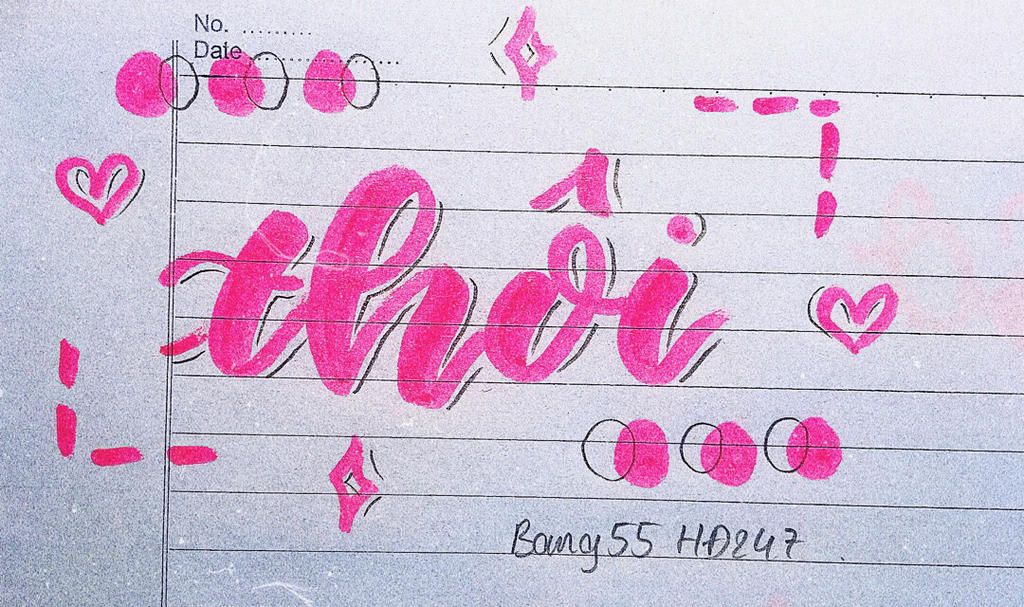 No. .........
Date ....................
thôi
Bang55 HĐ247